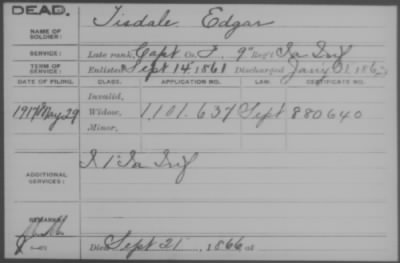 DEAD.
NAME OF SOLDIER: Tisdale Edgar
SERVICE: Late rank, Capt Co. F, 9" Reg't Ia Inf
TERM OF SERVICE: Enlisted Sept 14, 1861 Discharged Jany 31, 186
DATE OF FILING. CLASS. APPLICATION NO. LAW. CERTIFICATE NO.
Invalid,
1917 May 29 Widow, 1,101.637 Sept 880640
Minor,
ADDITIONAL SERVICES: I 1" Ia Inf
REMARKS:
Died Sept 21, 1866 at